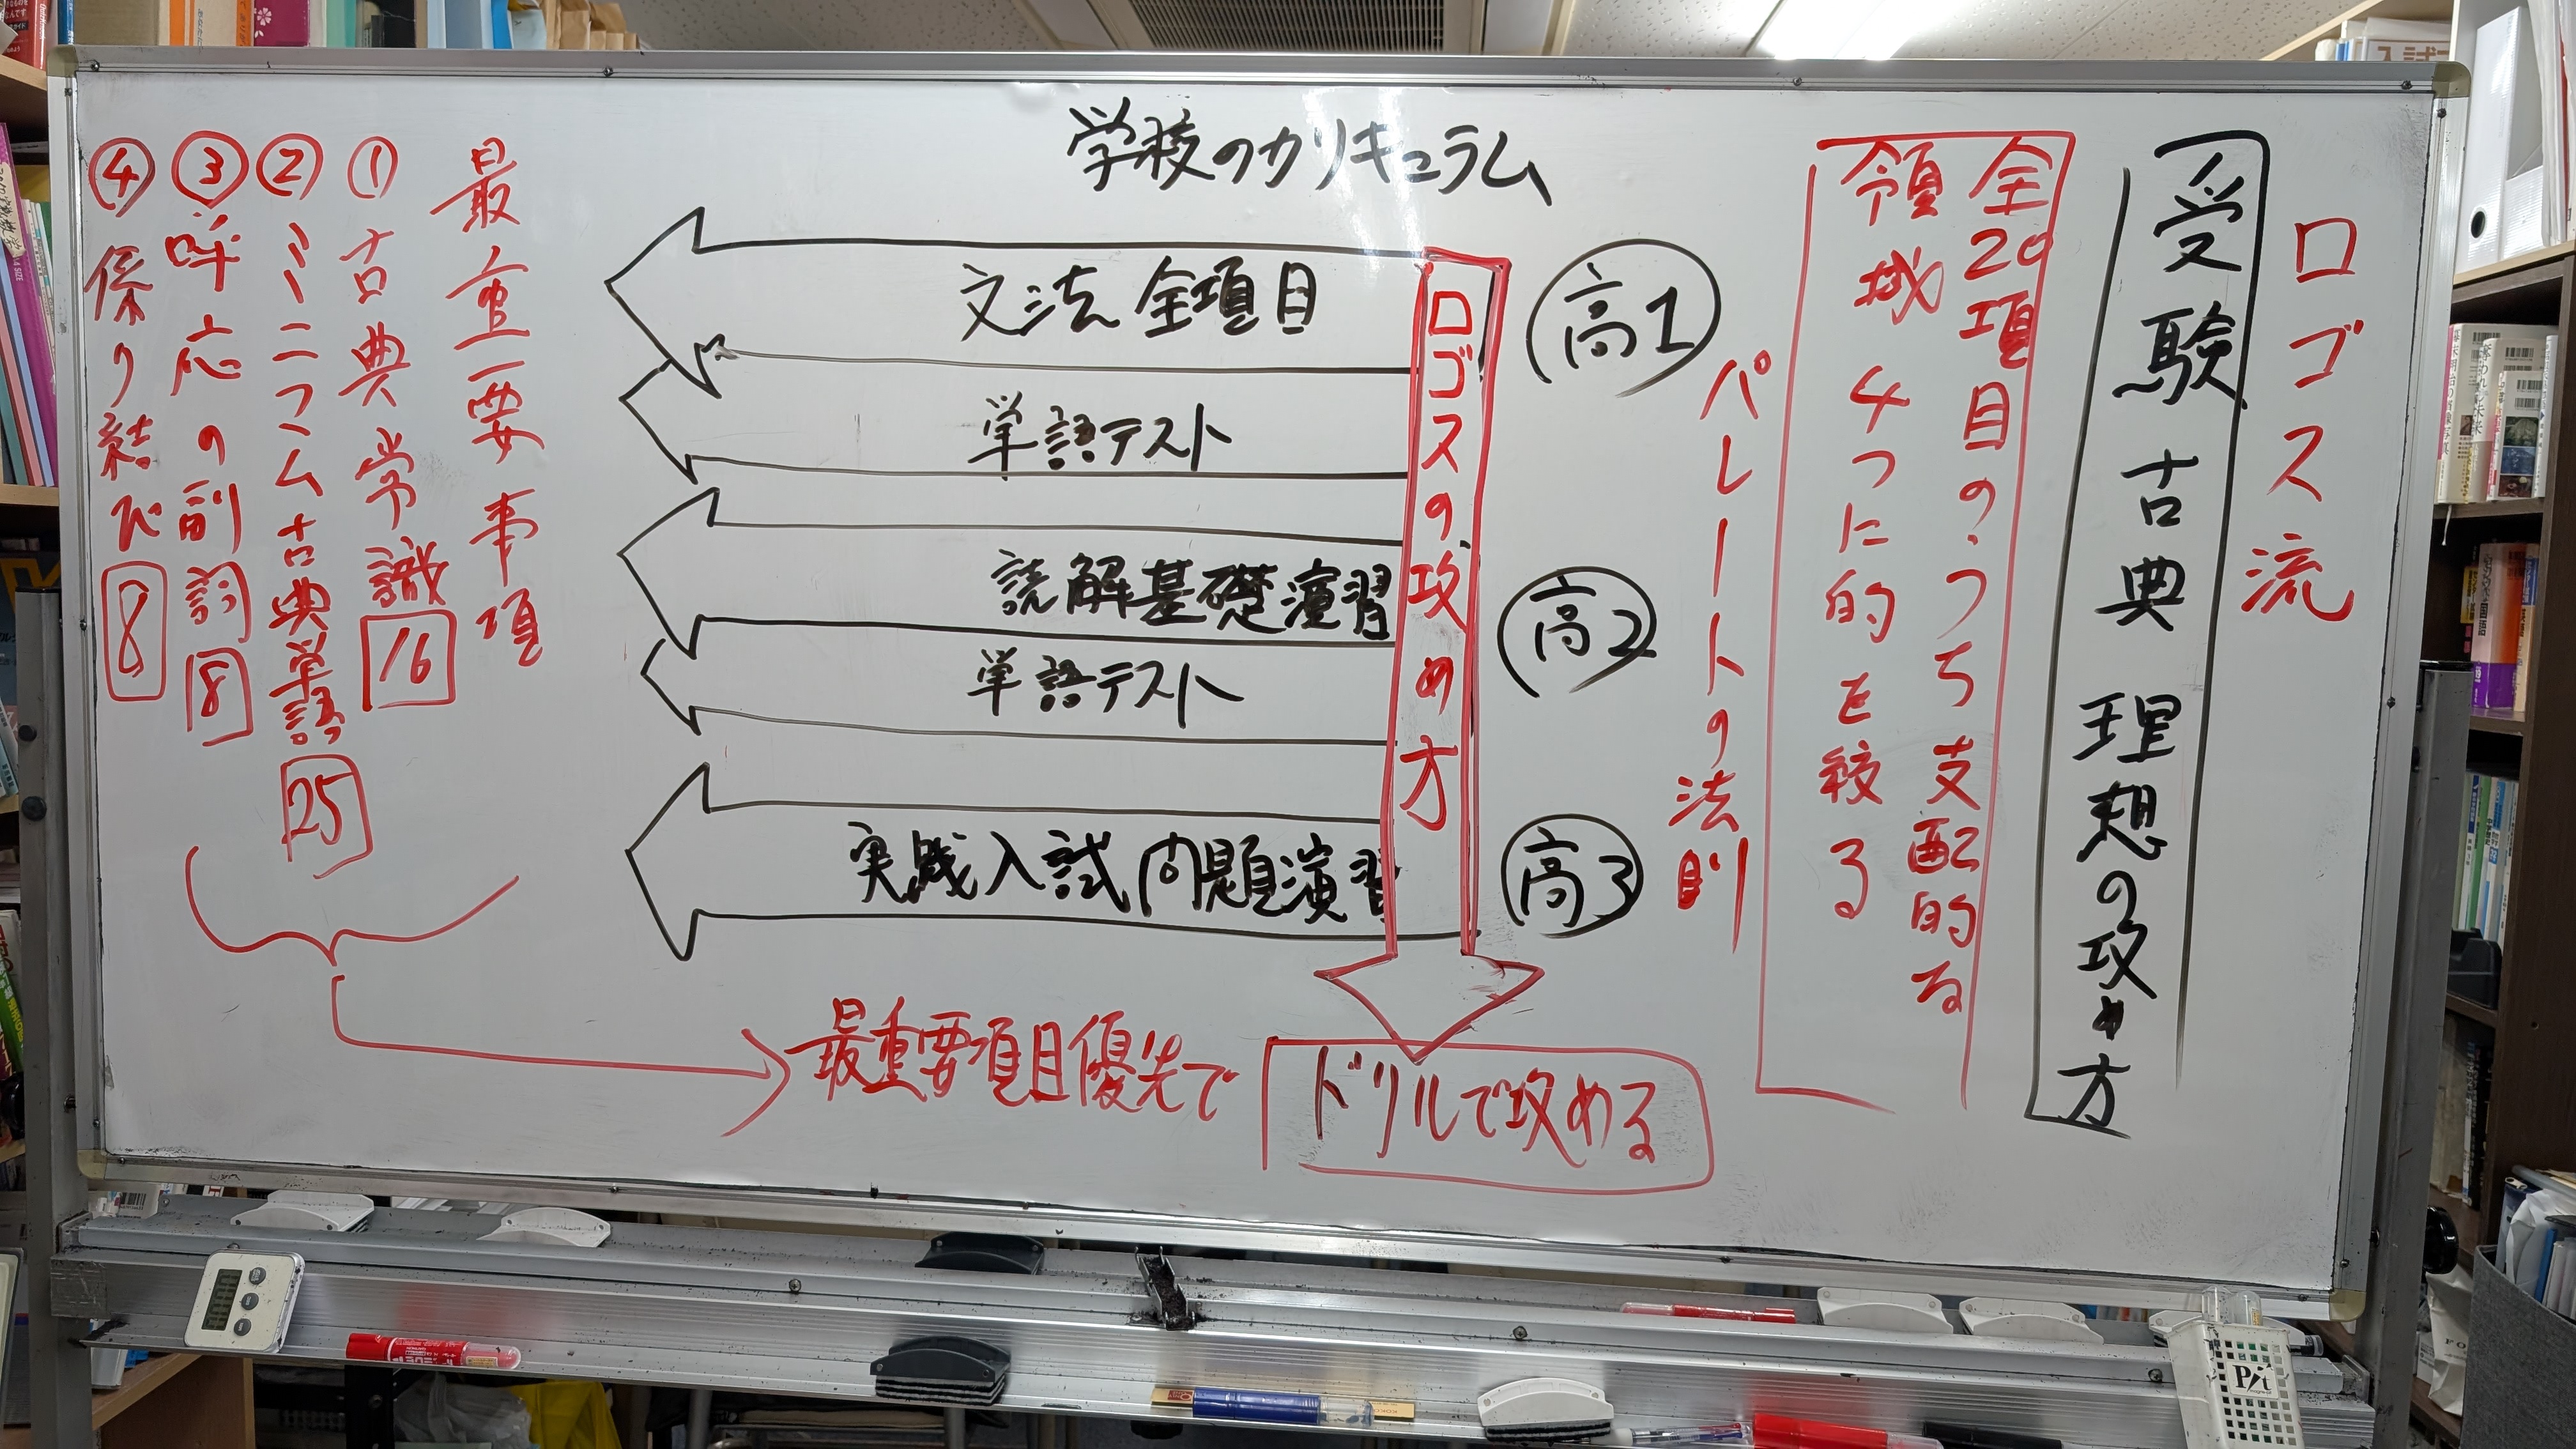 ロゴス流
受験古典 理想の攻め方
全20項目のうち支配的な
領域4つに的を絞る
パレートの法則
学校のカリキュラム
高1
文法 全項目
単語テスト
高2
読解基礎演習
単語テスト
高3
実践入試問題演習
ロゴスの攻め方
最重要事項
① 古典常識 16
② ミニマム古典単語 25
③ 呼応の副詞 8
④ 係り結び 8
最重要項目優先で
ドリルで攻める
Pit